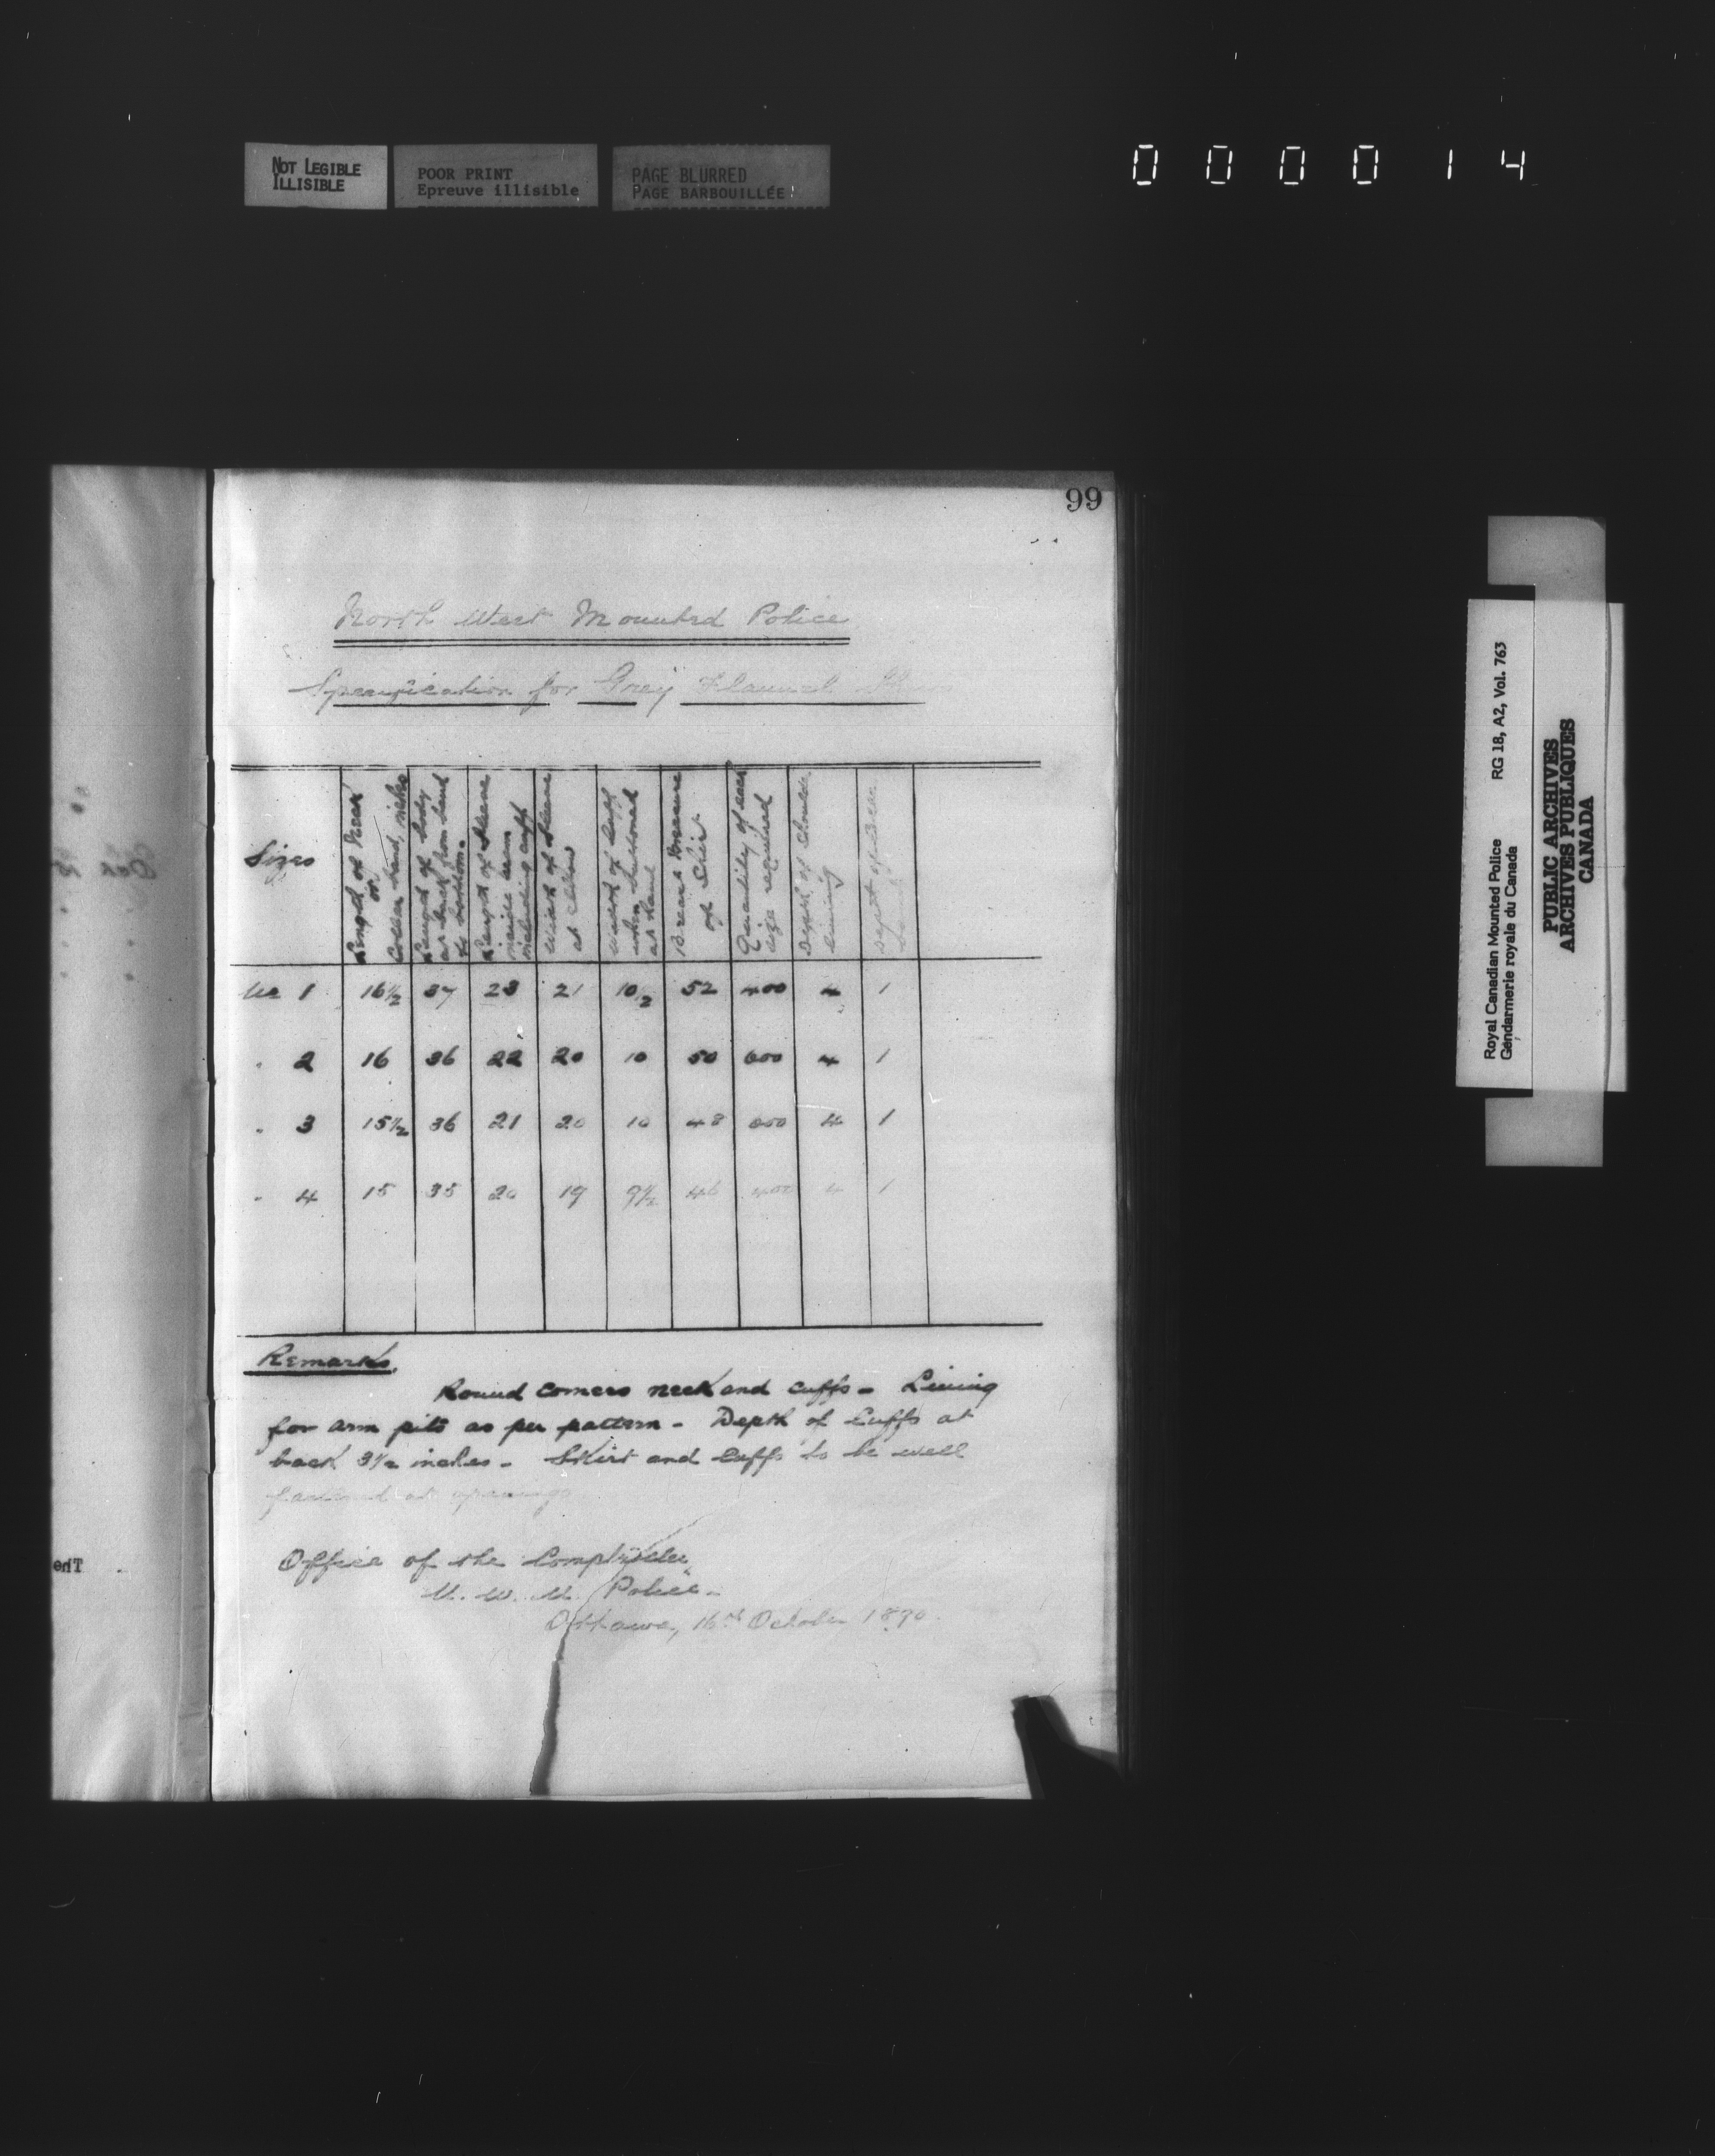 NOT LEGIBLE
ILLISIBLE
POOR PRINT
Epreuve illisible
PAGE BLURRED
PAGE BARBOUILLÉE
000014
99
North West Mounted Police
Specification for Grey Flannel
Sizes
Length of Neck
or
Collar band, inches
Length of body
at back from band
to bottom.
Length of Sleeve
inside seam
including cuff
Width of Sleeve
at elbow
Width of Cuff
when buttoned
at hand
Breast Measure
of Shirt
Quantity of each
size required
Depth of Shoulder
lining
Depth of
No 1 16½ 37 23 21 10½ 52 400 4 1
" 2 16 36 22 20 10 50 600 4 1
" 3 15½ 36 21 20 10 48 4 1
" 4 15 35 20 19 9½ 46 400 4 1
Remarks.
Round corners neck and cuffs - Lining
for arm pits as per pattern - Depth of Cuffs at
back 3½ inches - Skirt and Cuffs to be well
fastened at openings
Office of the Comptroller
N. W. M. Police -
Ottawa, 16th October 1890.
The
Royal Canadian Mounted Police
Gendarmerie royale du Canada
RG 18, A2, Vol. 763
PUBLIC ARCHIVES
ARCHIVES PUBLIQUES
CANADA